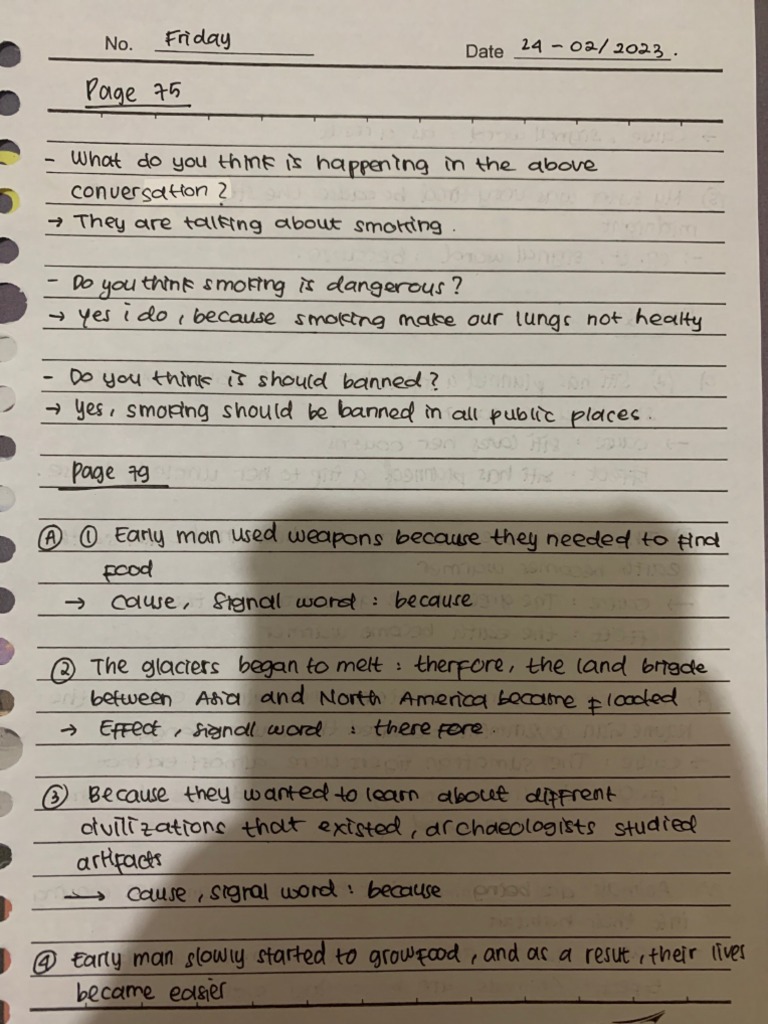 No. Friday
Date 24 - 02/2023.
Page 75
- What do you think is happening in the above
conversation?
→ They are talking about smoking.
- Do you think smoking is dangerous?
→ yes i do, because smoking make our lungs not healty
- Do you think is should banned?
→ yes, smoking should be banned in all public places.
Page 79
Ⓐ ① Early man used weapons because they needed to find
food
→ cause, signal word : because
② The glaciers began to melt : therfore, the land brigde
between Asia and North America became flooded
→ Effect, signall word : there fore.
③ Because they wanted to learn about diffrent
civilizations that existed, archaeologists studied
artifacts
→ cause, signal word : because
④ Early man slowly started to grow food, and as a resut, their lives
became easier